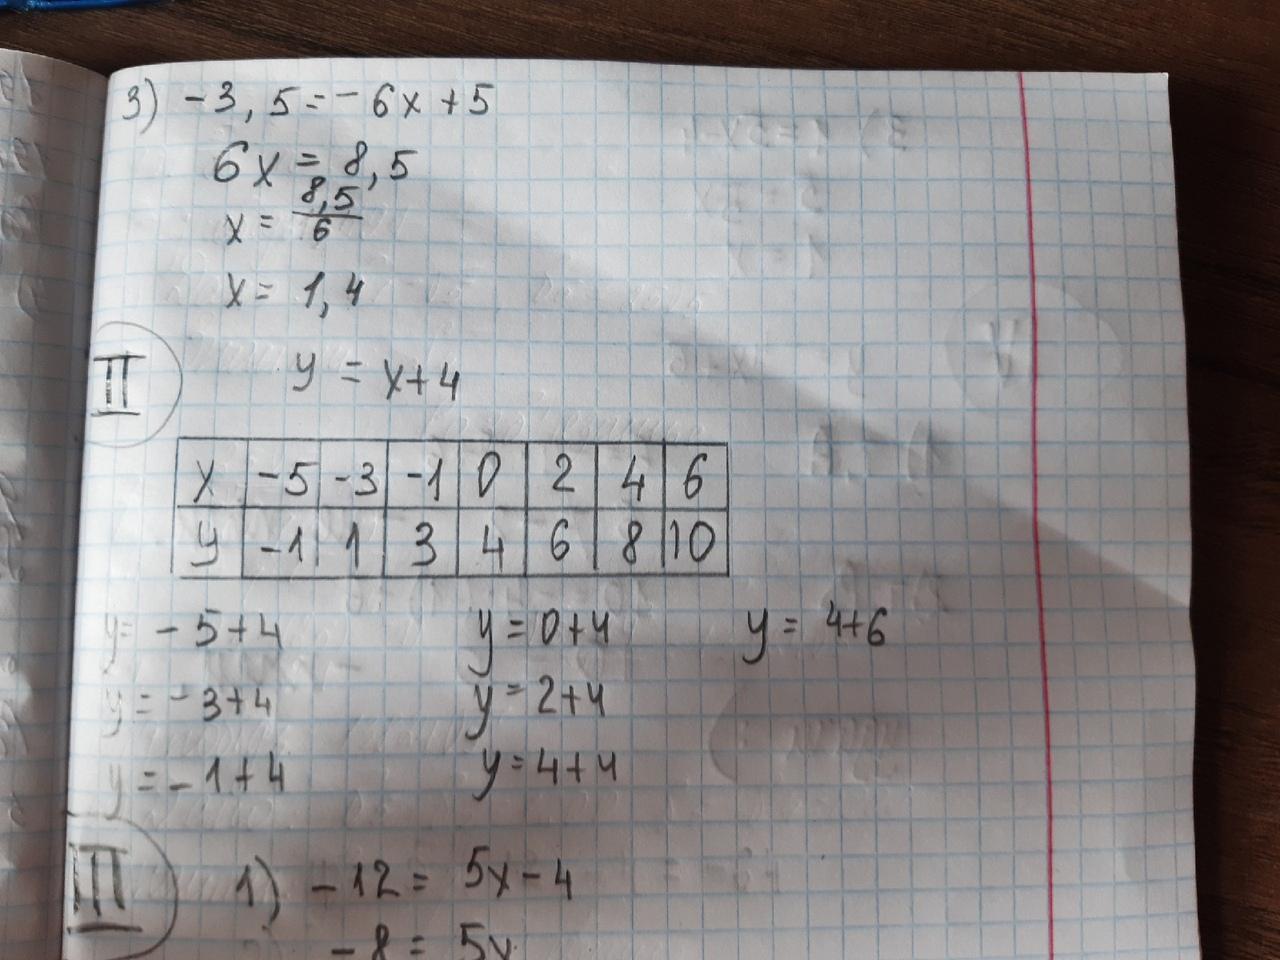 3) -3,5=-6x+5
6x = 8,5
x = 8,5/6
x = 1,4
II y = x+4
x -5 -3 -1 0 2 4 6
y -1 1 3 4 6 8 10
y= -5+4 y=0+4 y= 4+6
y= -3+4 y=2+4
y=-1+4 y=4+4
III 1) -12= 5x-4
-8= 5x